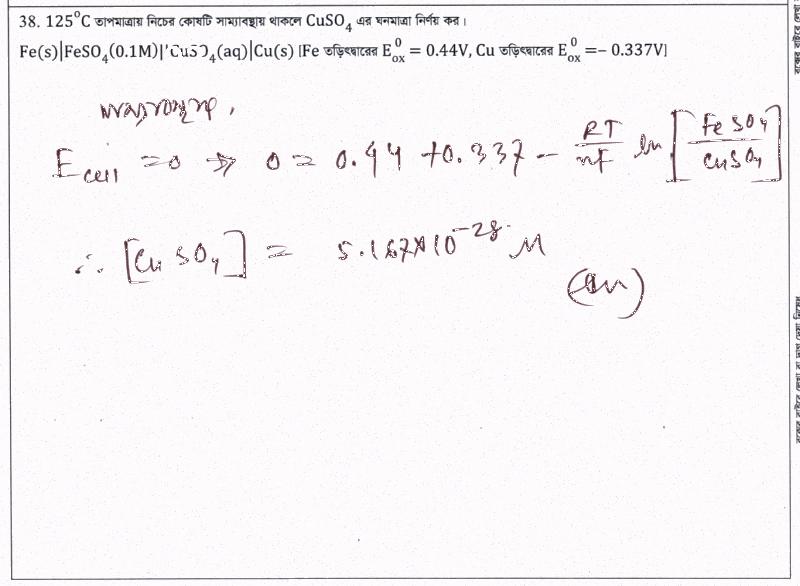 38. 125⁰C তাপমাত্রায় নিচের কোষটি সাম্যাবস্থায় থাকলে CuSO₄ এর ঘনমাত্রা নির্ণয় কর।
Fe(s)|FeSO₄(0.1M)|'CuSO₄(aq)|Cu(s) [Fe তড়িৎদ্বারের E⁰ₒₓ = 0.44V, Cu তড়িৎদ্বারের E⁰ₒₓ =− 0.337V]
E cell = 0 ⇒ 0 = 0.44 +0.337 − RT/nF ln [FeSO₄/CuSO₄]
∴ [CuSO₄] = 5.167×10⁻²⁸ M
(Ans)